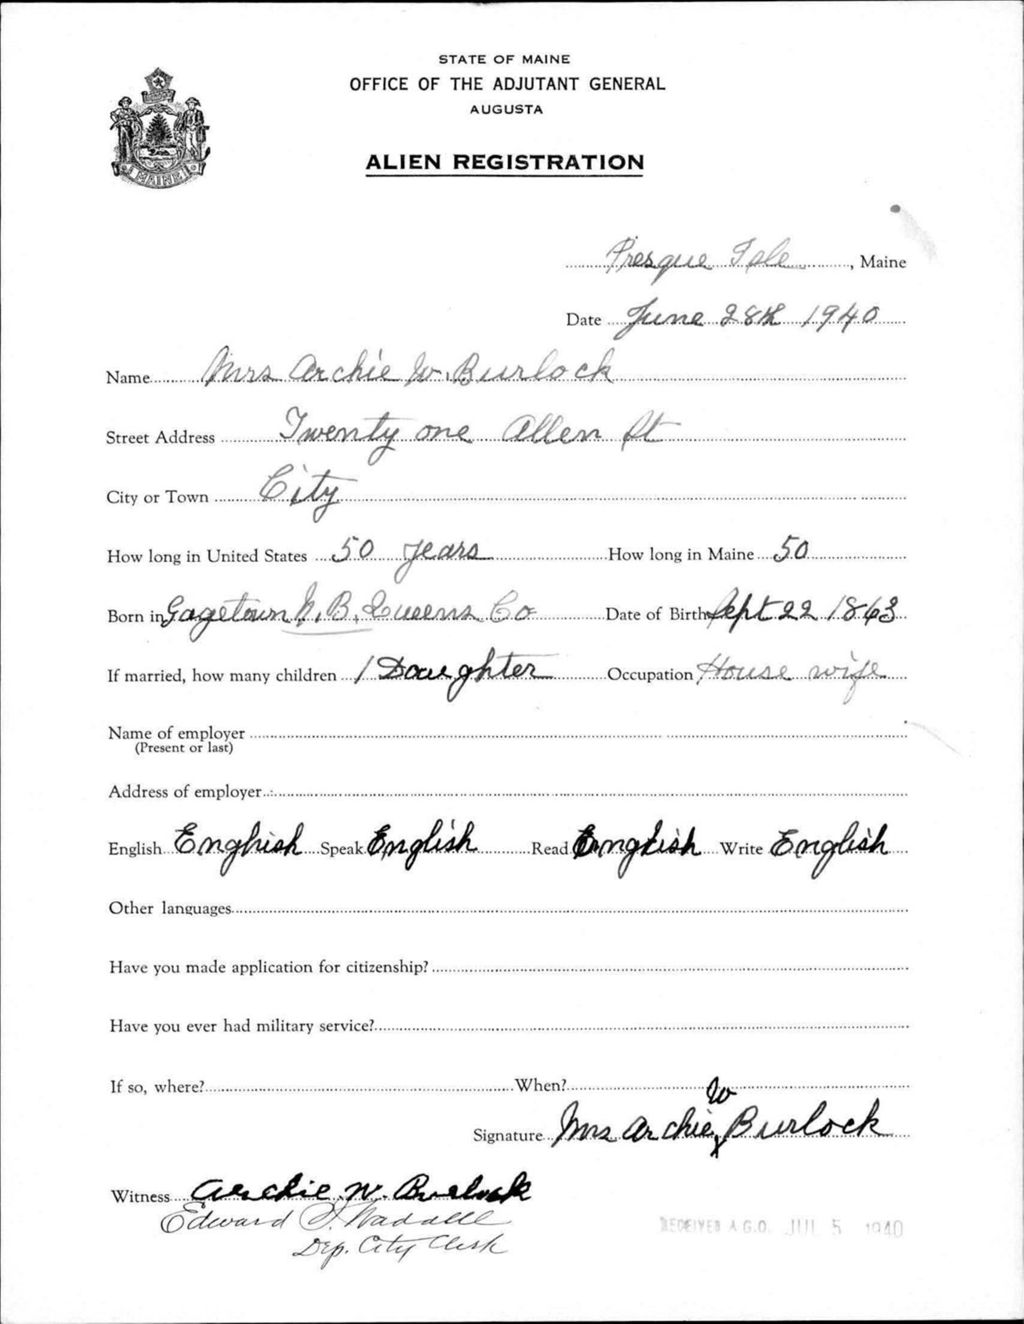 STATE OF MAINE
OFFICE OF THE ADJUTANT GENERAL
AUGUSTA
ALIEN REGISTRATION
MAINE
Presque Isle, Maine
Date June 28th 1940
Name Mrs Archie W. Burlock
Street Address Twenty one Allen St
City or Town City
How long in United States 50 years How long in Maine 50
Born in Gagetown N.B. Queens Co Date of Birth Sept 22 1863
If married, how many children 1 Daughter Occupation House wife
Name of employer
(Present or last)
Address of employer
English English Speak English Read English Write English
Other languages
Have you made application for citizenship?
Have you ever had military service?
If so, where? When?
Signature Mrs Archie W Burlock
Witness Archie W. Burlock
Edward
Dep. City Clerk
RECEIVED A.G.O. JUL 5 1940